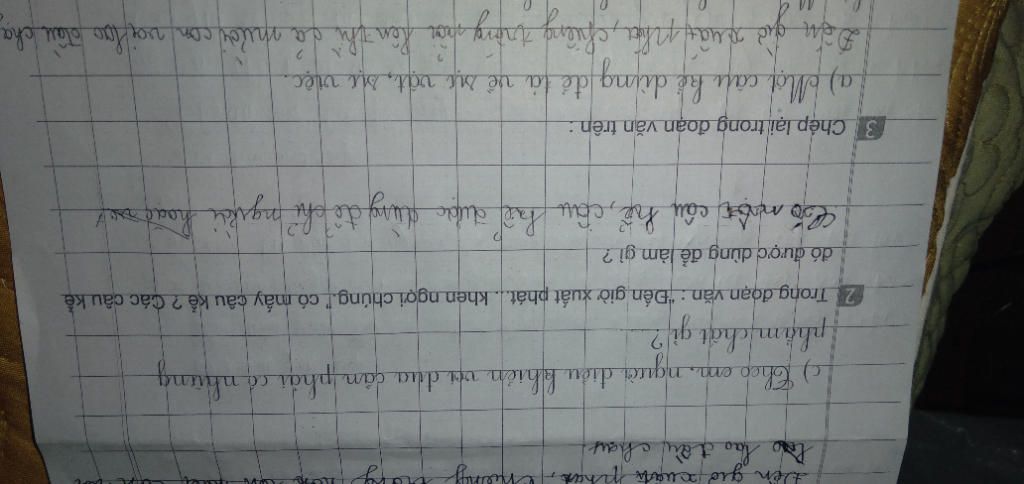 Đến giờ xuất phát, chiêng trống
lao đầu chạy.
c) Theo em, người điều khiển voi đua cần phải có những
phẩm chất gì?
2 Trong đoạn văn : "Đến giờ xuất phát... khen ngợi chúng." có mấy câu kể ? Các câu kể
đó được dùng để làm gì ?
Có một câu kể, câu kể được dùng để chỉ người hoặc
3 Chép lại trong đoạn văn trên :
a) Một câu kể dùng để tả về sự vật, sự việc.
Đến giờ xuất phát, chiêng trống nổi lên thì cả mười con voi lao đầu chạy